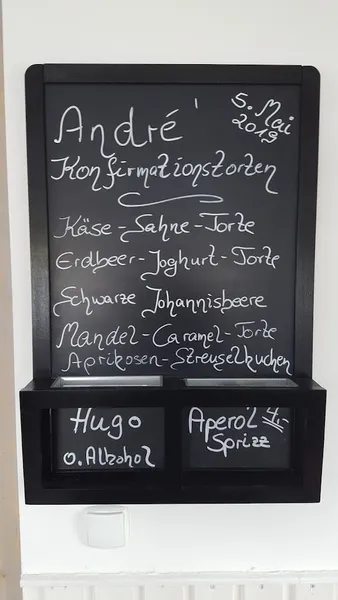 André
5. Mai
2019
Konfirmationstorten
Käse-Sahne-Torte
Erdbeer-Joghurt-Torte
Schwarze Johannisbeere
Mandel-Caramel-Torte
Aprikosen-Streuselkuchen
Hugo
o. Alkohol
Aperol 4,-
Sprizz